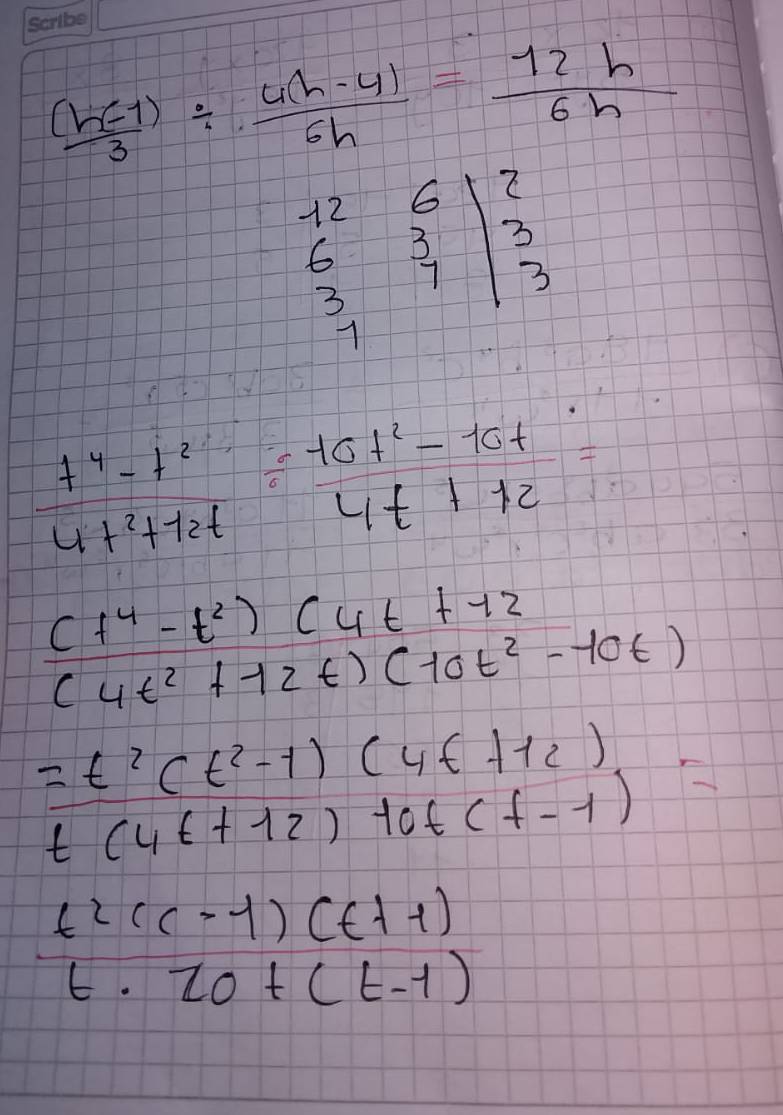 Scribe
(h-1)/3 ÷ 4(h-4)/6h = 12h/6h
12 6 | 2
6 3 | 3
3 1 | 3
1
t⁴-t²/4t²+12t ÷ 10t²-10t/4t+12 =
(t⁴-t²)(4t+12
(4t²+12t)(10t²-10t)
=t²(t²-1)(4t+12) =
t(4t+12)10t(t-1)
t²((-1)(t+1)
t.20t(t-1)